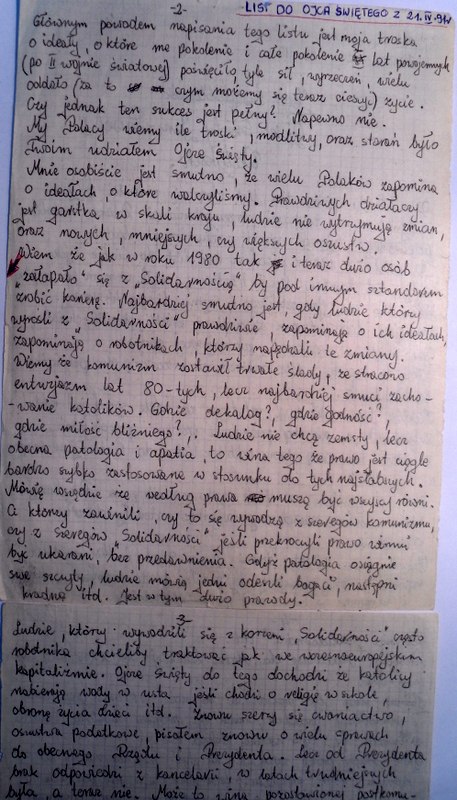 -2-
LIST DO OJCA ŚWIĘTEGO Z 21.IV.91r
Głównym powodem napisania tego listu jest moja troska
o ideały, o które me pokolenie i całe pokolenie lat powojennych
(po II wojnie światowej) poświęciło tyle sił, wyrzeczeń, wielu
oddało (za to czym możemy się teraz cieszyć) życie.
Czy jednak ten sukces jest pełny? Napewno nie.
My Polacy wiemy ile troski, modlitwy, oraz starań było
Twoim udziałem Ojcze Święty.
Mnie osobiście jest smutno, że wielu Polaków zapomina
o ideałach, o które walczyliśmy. Prawdziwych działaczy
jest garstka w skali kraju, ludzie nie wytrzymują zmian,
oraz nowych, mniejszych, czy większych oszustw.
Wiem że jak w roku 1980 tak i teraz dużo osób
"załapało" się z "Solidarnością" by pod innym sztandarem
zrobić karierę. Najbardziej smutno jest, gdy ludzie którzy
wyrośli z "Solidarności" prawdziwie, zapominają o ich ideałach,
zapominają o robotnikach, którzy napędzali te zmiany.
Wiemy że komunizm zostawił trwałe ślady, że stracono
entuzjazm lat 80-tych, lecz najbardziej smuci zacho-
-wanie katolików. Gdzie dekalog?, gdzie godność?,
gdzie miłość bliźniego?,. Ludzie nie chcą zemsty, lecz
obecna patologia i apatia, to wina tego że prawo jest ciągle
bardzo szybko zastosowane w stosunku do tych najsłabszych.
Mówię wszędzie że według prawa muszą być wszyscy równi.
Ci którzy zawinili, czy to się wywodzą z szeregów komunizmu,
czy z szeregów "Solidarności" jeśli przekroczyli prawo winni
być ukarani, bez przedawnienia. Gdyż patologia osiągnie
swe szczyty, ludzie mówią jedni odeszli bogaci, następni
kradną itd. Jest w tym dużo prawdy.
-3-
Ludzie, który wywodzili się z korzeni "Solidarności" często
robotnika chcieliby traktować jak we wczesnoeuropejskim
kapitalizmie. Ojcze Święty do tego dochodzi że katolicy
nabierają wody w usta jeśli chodzi o religię w szkole,
obronę życia dzieci itd. Znowu szerzy się cwaniactwo,
oszustwa podatkowe, pisałem znowu o wielu sprawach
do obecnego Rządu i Prezydenta. Lecz od Prezydenta
brak odpowiedzi z kancelarii, w latach trudniejszych
była, a teraz nie. Może to wina pozostawionej postkomu-